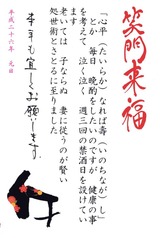 笑門来福
「心平(たいらか)なれば壽(いのちなが)し」
とか 毎日 晩酌をしたいのですが 健康の事
を考えて 泣く泣く 週三回の禁酒日を設けてい
ます
老いては 子ならぬ 妻に従うのが賢い
処世術とさとるに至りました
本年も宜しくお願いします。
平成二十六年 元旦